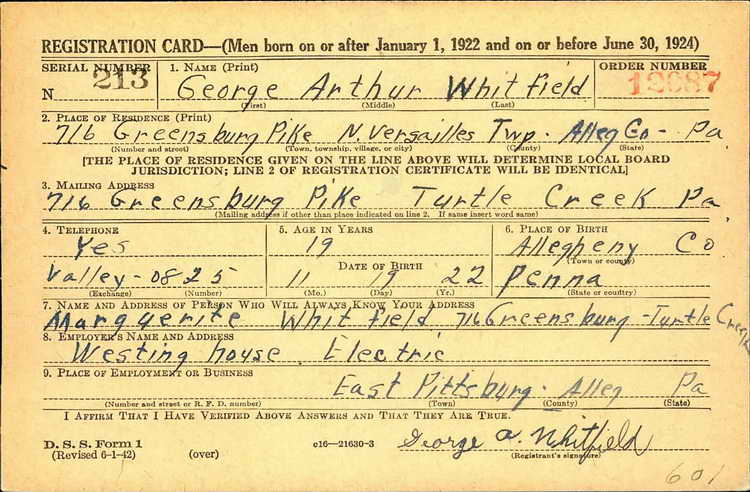 REGISTRATION CARD—(Men born on or after January 1, 1922 and on or before June 30, 1924)
SERIAL NUMBER 1. NAME (Print) ORDER NUMBER
N 213 George Arthur Whitfield 12687
(First) (Middle) (Last)
2. PLACE OF RESIDENCE (Print)
716 Greensburg Pike N. Versailles Twp. Alleg Co- Pa
(Number and street) (Town, township, village, or city) (County) (State)
[THE PLACE OF RESIDENCE GIVEN ON THE LINE ABOVE WILL DETERMINE LOCAL BOARD
JURISDICTION; LINE 2 OF REGISTRATION CERTIFICATE WILL BE IDENTICAL]
3. MAILING ADDRESS
716 Greensburg Pike Turtle Creek Pa
(Mailing address if other than place indicated on line 2. If same insert word same)
4. TELEPHONE 5. AGE IN YEARS 6. PLACE OF BIRTH
Yes 19 Allegheny Co
(Town or county)
DATE OF BIRTH
Valley-0825 11 19 22 Penna
(Exchange) (Number) (Mo.) (Day) (Yr.) (State or country)
7. NAME AND ADDRESS OF PERSON WHO WILL ALWAYS KNOW YOUR ADDRESS
Marguerite Whitfield 716 Greensburg-Turtle Creek
8. EMPLOYER'S NAME AND ADDRESS
Westing house Electric
9. PLACE OF EMPLOYMENT OR BUSINESS
East Pittsburg. Alleg Pa
(Number and street or R. F. D. number) (Town) (County) (State)
I AFFIRM THAT I HAVE VERIFIED ABOVE ANSWERS AND THAT THEY ARE TRUE.
D. S. S. Form 1
(Revised 6-1-42) (over) c16—21630-3 George A. Whitfield
(Registrant's signature)
601